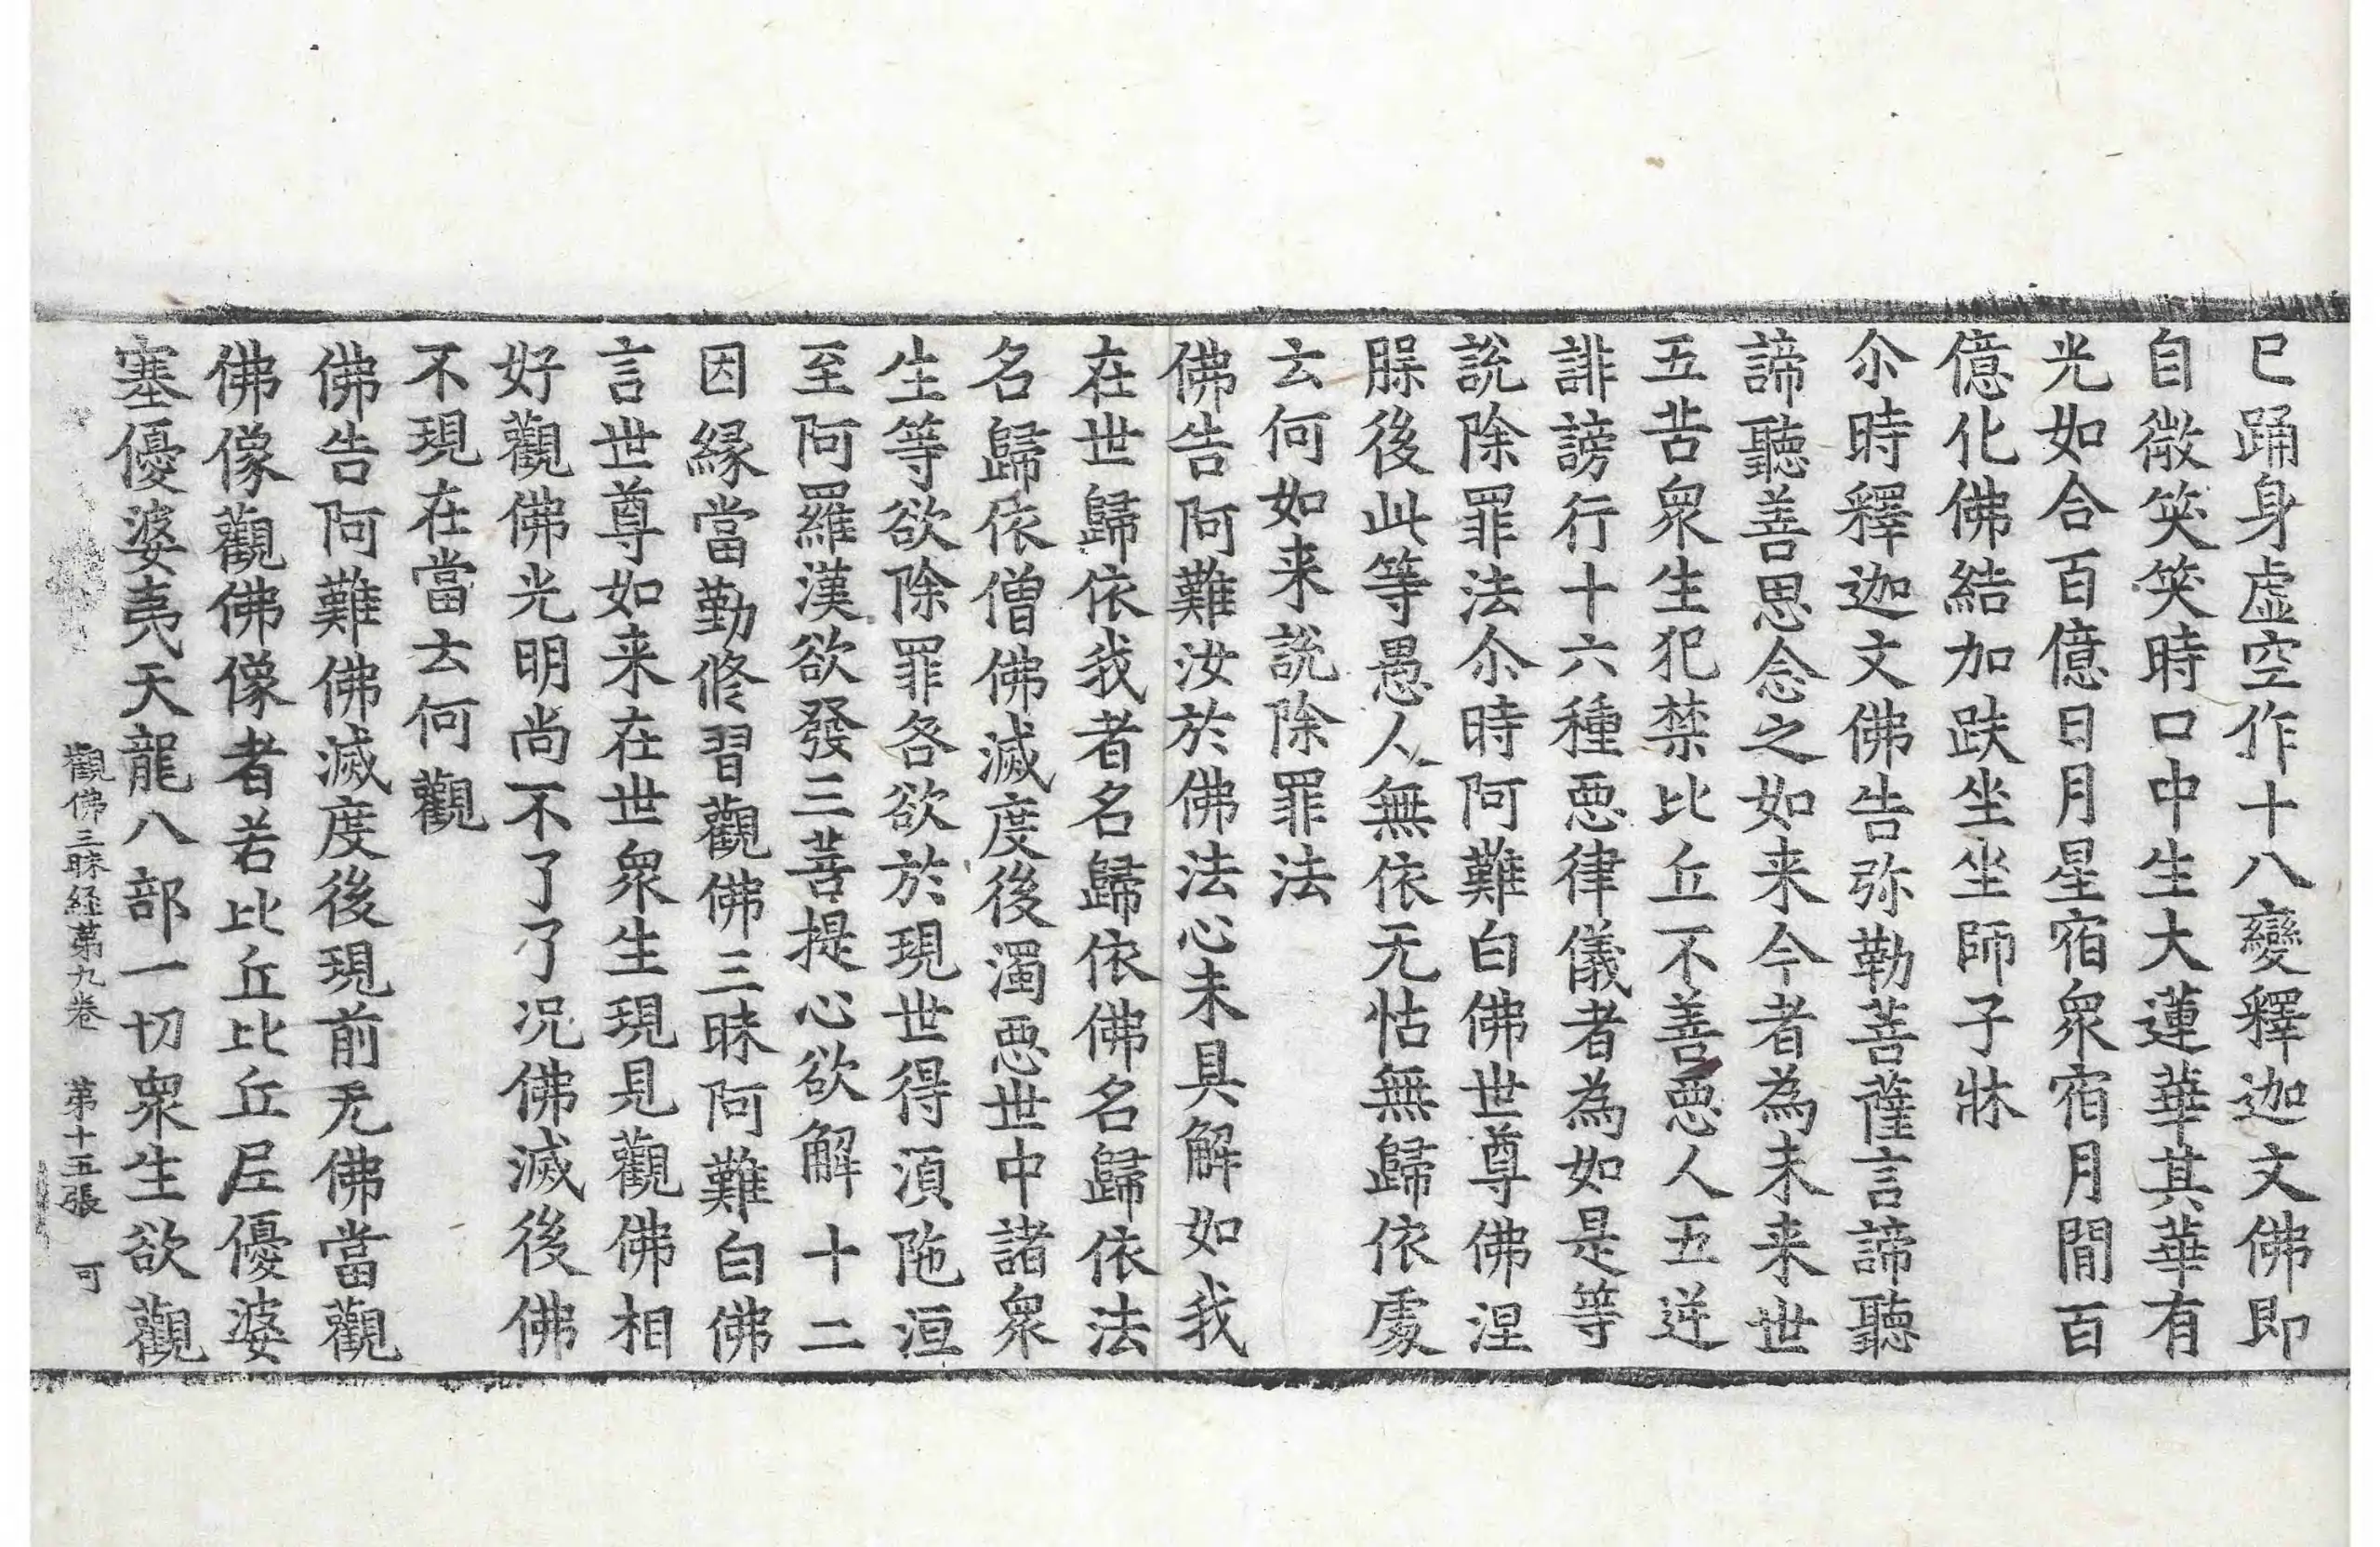 已踊身虛空作十八變釋迦文佛即
自微笑笑時口中生大蓮華其華有
光如合百億日月星宿衆宿月間百
億化佛結加趺坐坐師子牀
尒時釋迦文佛告弥勒菩薩言諦聽
諦聽善思念之如来今者為未来世
五苦衆生犯禁比丘不善惡人五逆
誹謗行十六種惡律儀者為如是等
說除罪法尒時阿難白佛世尊佛涅
脲後此等愚人無依无怙無歸依處
云何如来說除罪法
佛告阿難汝於佛法心未具解如我
在世歸依我者名歸依佛名歸依法
名歸依僧佛滅度後濁惡世中諸衆
生等欲除罪各欲於現世得湏陁洹
至阿羅漢欲發三菩提心欲解十二
因緣當勤修習觀佛三昧阿難白佛
言世尊如来在世衆生現見觀佛相
好觀佛光明尚不了了况佛滅後佛
不現在當云何觀
佛告阿難佛滅度後現前无佛當觀
佛像觀佛像者若比丘比丘尼優婆
塞優婆夷天龍八部一切衆生欲觀
觀佛三昧経苐九卷 苐十五張 可